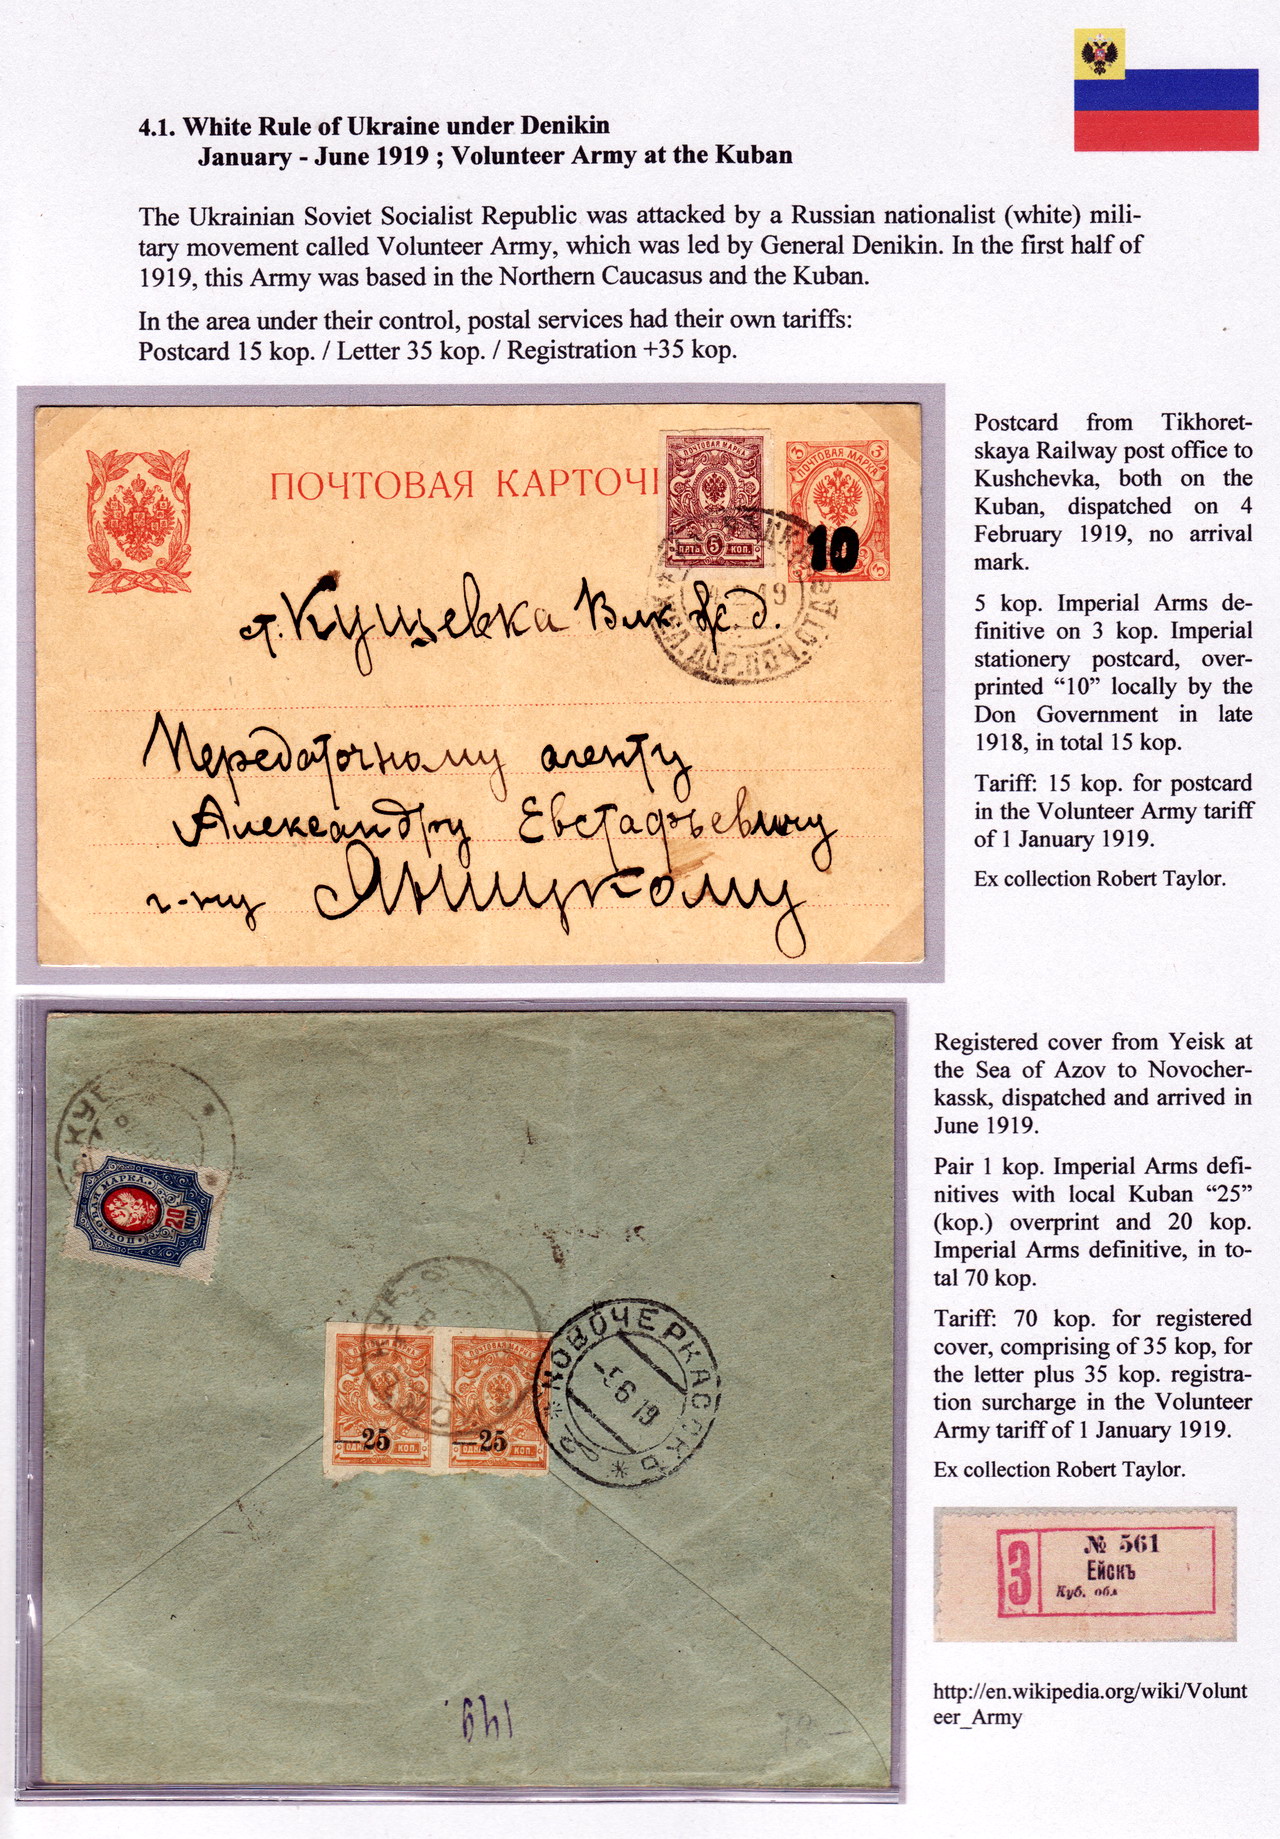 4.1. White Rule of Ukraine under Denikin
January - June 1919 ; Volunteer Army at the Kuban
The Ukrainian Soviet Socialist Republic was attacked by a Russian nationalist (white) mili-
tary movement called Volunteer Army, which was led by General Denikin. In the first half of
1919, this Army was based in the Northern Caucasus and the Kuban.
In the area under their control, postal services had their own tariffs:
Postcard 15 kop. / Letter 35 kop. / Registration +35 kop.
ПОЧТОВАЯ КАРТОЧ
ПОЧТОВАЯ МАРКА
5
ПЯТЬ 5 КОП.
3 3
ПОЧТОВАЯ МАРКА
10
3
19
ДОР.ПОЧ.ОТД
ст. Кущевка Влк ж.д.
Передаточному агенту
Александру Евстафьевичу
г-ну Яницкому
Postcard from Tikhoret-
skaya Railway post office to
Kushchevka, both on the
Kuban, dispatched on 4
February 1919, no arrival
mark.
5 kop. Imperial Arms de-
finitive on 3 kop. Imperial
stationery postcard, over-
printed “10” locally by the
Don Government in late
1918, in total 15 kop.
Tariff: 15 kop. for postcard
in the Volunteer Army tariff
of 1 January 1919.
Ex collection Robert Taylor.
ПОЧТОВАЯ МАРКА.
20 КОП.
ПОЧТОВАЯ МАРКА
ПОЧТОВАЯ МАРКА
—25 —25
ОДНА КОП.
КОП.
НОВОЧЕРКАССКЪ
-5 6 19
149.
Registered cover from Yeisk at
the Sea of Azov to Novocher-
kassk, dispatched and arrived in
June 1919.
Pair 1 kop. Imperial Arms defi-
nitives with local Kuban “25”
(kop.) overprint and 20 kop.
Imperial Arms definitive, in to-
tal 70 kop.
Tariff: 70 kop. for registered
cover, comprising of 35 kop, for
the letter plus 35 kop. registra-
tion surcharge in the Volunteer
Army tariff of 1 January 1919.
Ex collection Robert Taylor.
З
№ 561
Ейскъ
Куб. обл
http://en.wikipedia.org/wiki/Volunt
eer_Army